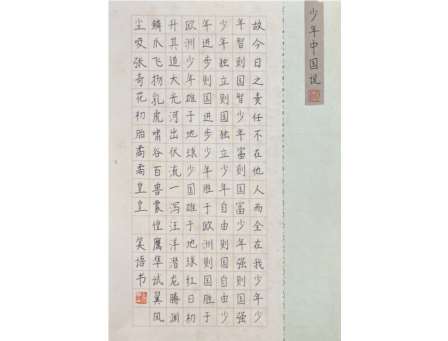 少年中国说
故今日之责任不在他人而全在我少年少
年智则国智少年富则国富少年强则国强
少年独立则国独立少年自由则国自由少
年进步则国进步少年胜于欧洲则国胜于
欧洲少年雄于地球则国雄于地球红日初
升其道大光河出伏流一泻汪洋潜龙腾渊
鳞爪飞扬乳虎啸谷百兽震惶鹰隼试翼风
尘吸张奇花初胎矞矞皇皇 笑语书